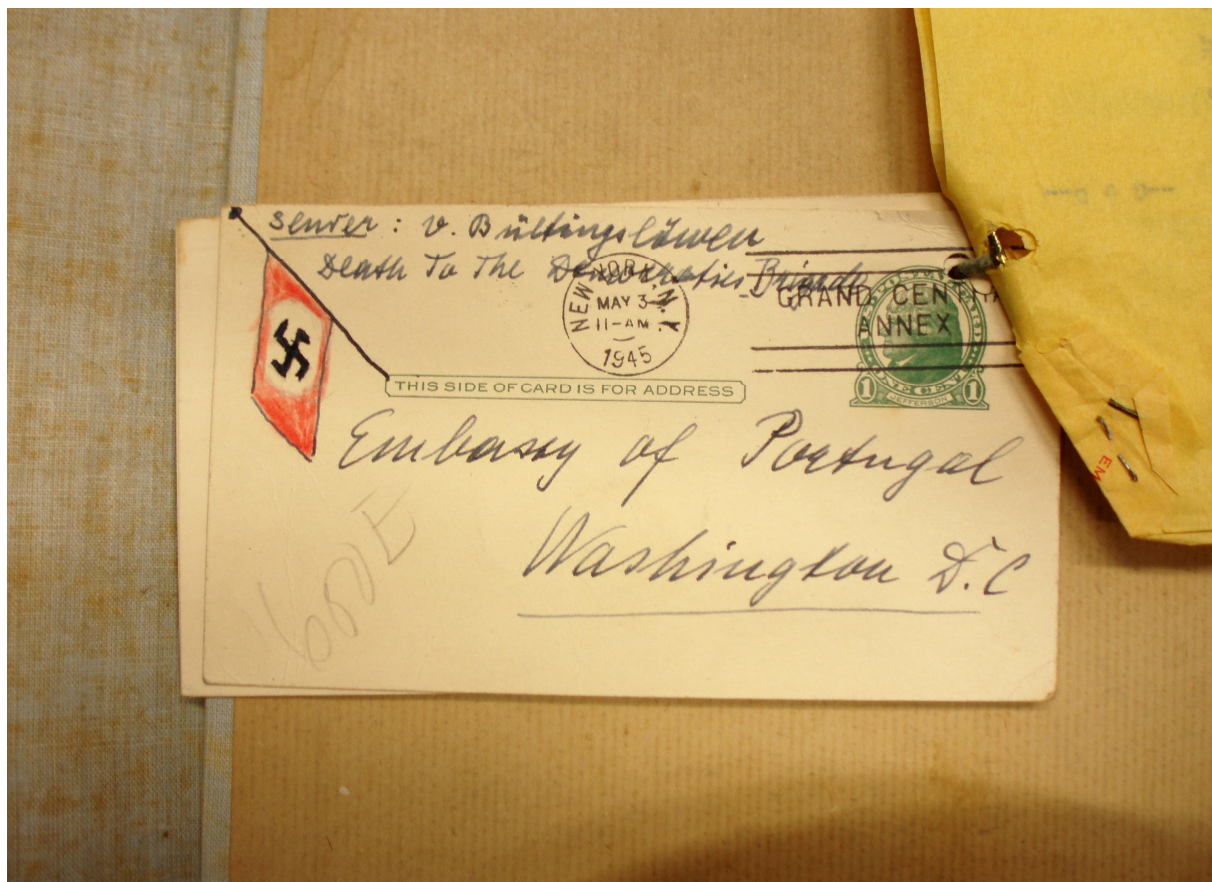 Sender: v. Bültingslöwen
Death To The Democraties Brigade
NEW YORK, N.Y.
MAY 3
11-AM
1945
GRAND CEN
NNEX
THIS SIDE OF CARD IS FOR ADDRESS
ONE CENT
1 1
JEFFERSON
Embassy of Portugal
Washington D.C
EM